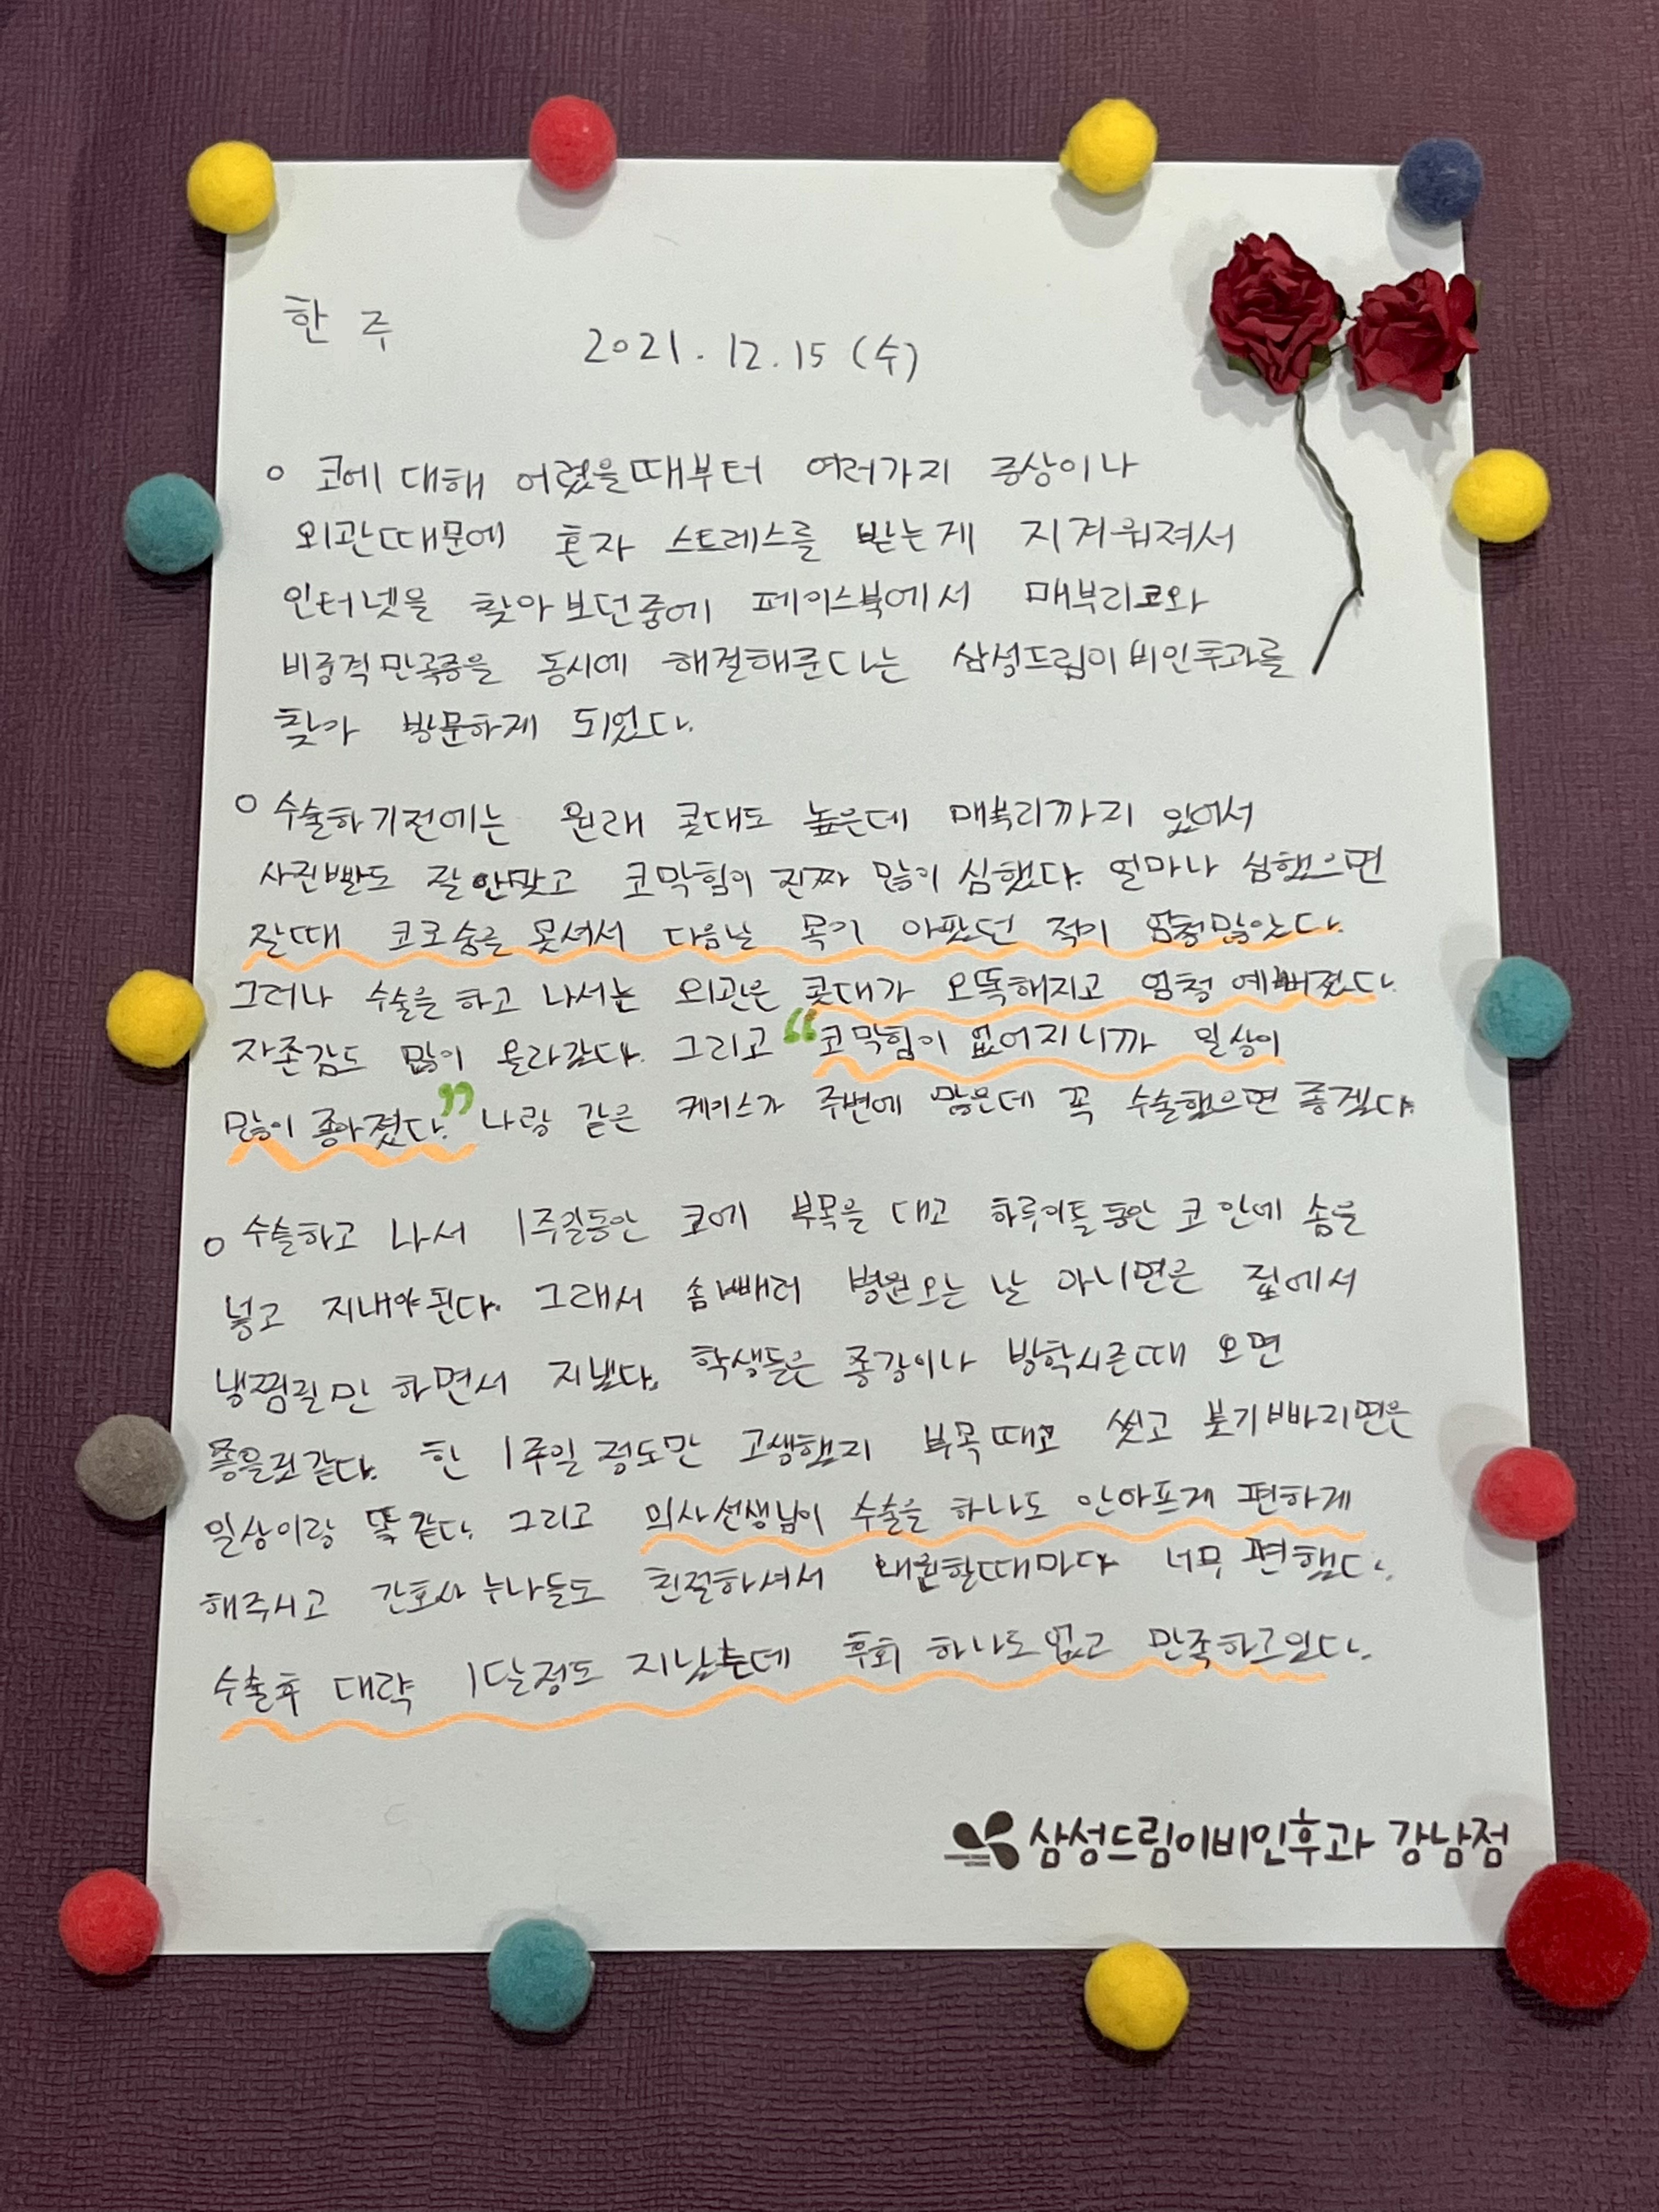 한 주
2021. 12. 15 (수)
○ 코에 대해 어렸을때부터 여러가지 증상이나
외관때문에 혼자 스트레스를 받는게 지겨워져서
인터넷을 찾아보던중에 페이스북에서 매부리코와
비중격만곡증을 동시에 해결해준다는 삼성드림이비인후과를
찾아 방문하게 되었다.
○ 수술하기전에는 원래 콧대도 높은데 매부리까지 있어서
사진빨도 잘 안맞고 코막힘이 진짜 많이 심했다. 얼마나 심했으면
잘때 코로숨을 못셔서 다음날 목이 아팠던 적이 엄청많았다.
그러나 수술을 하고 나서는 외관은 콧대가 오똑해지고 엄청 예뻐졌다.
자존감도 많이 올라갔다. 그리고 “코막힘이 없어지니까 일상이
많이 좋아졌다.” 나랑 같은 케이스가 주변에 많은데 꼭 수술했으면 좋겠다.
○ 수술하고 나서 1주일동안 코에 부목을 대고 하루이틀동안 코 안에 솜을
넣고 지내야된다. 그래서 솜빼러 병원오는 날 아니면은 집에서
냉찜질만 하면서 지냈다. 학생들은 종강이나 방학시즌때 오면
좋을것같다. 한 1주일 정도만 고생했지 부목때고 씻고 붓기빠지면은
일상이랑 똑같다. 그리고 의사선생님이 수술을 하나도 안아프게 편하게
해주시고 간호사 누나들도 친절하셔서 내원할때마다 너무 편했다.
수술후 대략 1달정도 지났는데 후회 하나도없고 만족하고있다.
삼성드림이비인후과 강남점